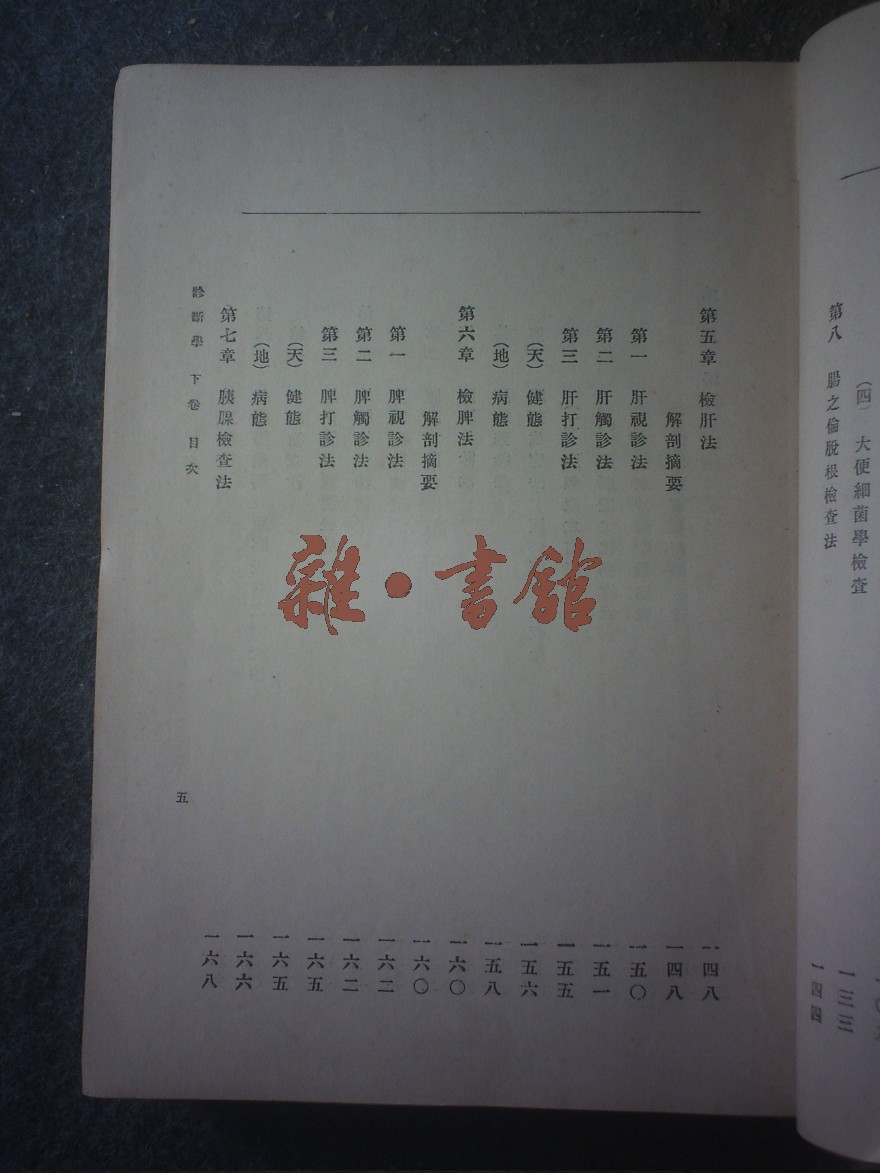 (四) 大便細菌學檢查 一三三
第八 腸之倫脫根檢查法 一四四
第五章 檢肝法 一四八
解剖摘要 一四八
第一 肝視診法 一五〇
第二 肝觸診法 一五一
第三 肝打診法 一五五
(天) 健態 一五六
(地) 病態 一五八
第六章 檢脾法 一六〇
解剖摘要 一六〇
第一 脾視診法 一六二
第二 脾觸診法 一六二
第三 脾打診法 一六五
(天) 健態 一六五
(地) 病態 一六六
第七章 胰腺檢查法 一六八
診斷學 下卷 目次 五
雜·書館